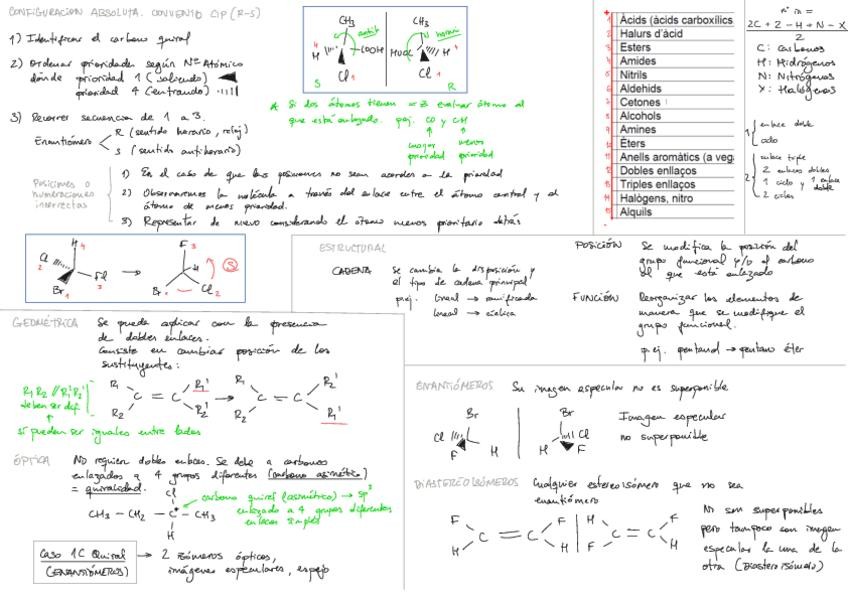 CONFIGURACIÓN ABSOLUTA. CONVENIO CIP (R-S)
1) Identificar el carbono quiral
2) Ordenar prioridades según Nº Atómico
dónde prioridad 1 (saliendo)
prioridad 4 (entrando)
3) Recorrer secuencia de 1 a 3.
Enantiómero
R (sentido horario, reloj)
S (sentido antihorario)
CH3
antih
H
COOH
Cl
S
CH3
horario
HOOC
H
Cl
R
* Si dos átomos tienen = Z evaluar átomo al
que está enlazado. pej. CO y CH
mayor prioridad
menor prioridad
Posiciones o
numeraciones
incorrectas
1) En el caso de que las posiciones no sean acordes a la prioridad
2) Observaremos la molécula a través del enlace entre el átomo central y el
átomo de menos prioridad.
3) Representar de nuevo considerando el átomo menos prioritario detrás
1 Àcids (àcids carboxílics
2 Halurs d'àcid
3 Esters
4 Amides
5 Nitrils
6 Aldehids
7 Cetones
8 Alcohols
9 Amines
10 Èters
11 Anells aromàtics (a veg
12 Dobles enllaços
13 Triples enllaços
14 Halògens, nitro
15 Alquils
nº in =
2C + 2 - H + N - X
2
C: Carbonos
H: Hidrógenos
N: Nitrógenos
X: Halógenos
1
enlace doble
ciclo
2
enlace triple
2 enlaces dobles
1 ciclo y 1 enlace doble
2 ciclos
H 4
Cl 2
F 3
Br 1
F 3
H
Br 1
Cl 2
S
ESTRUCTURAL
CADENA
se cambia la disposición y
el tipo de cadena principal
pej. lineal → ramificada
lineal → cíclica
POSICIÓN
Se modifica la posición del
grupo funcional y/o el carbono
al que está enlazado
FUNCIÓN
Reorganizar los elementos de
manera que se modifique el
grupo funcional.
pej. pentanol → pentano éter
GEOMÉTRICA
Se puede aplicar con la presencia
de dobles enlaces.
Consiste en cambiar posición de los
sustituyentes:
R1 R2 // R1' R2'
deben ser dif
sí pueden ser iguales entre lados
R1 R1'
C = C
R2 R2'
R1 R2'
C = C
R2 R1'
ÓPTICA
NO requieren dobles enlaces. Se debe a carbonos
enlazados a 4 grupos diferentes (carbono asimétrico)
= quiralidad.
Cl
CH3 - CH2 - C* - CH3
H
carbono quiral (asimétrico) → sp3
enlazado a 4 grupos diferentes
enlaces simples
Caso 1C Quiral
(ENANTIÓMEROS)
→ 2 isómeros ópticos,
imágenes especulares, espejo
ENANTIÓMEROS
Su imagen especular no es superponible
Br
Cl
H
F
Br
Cl
H
F
Imagen especular
no superponible
DIASTEREOISÓMEROS
Cualquier estereoisómero que no sea
enantiómero
F F
C = C
H H
H F
C = C
F H
No son superponibles
pero tampoco son imagen
especular la una de la
otra (Diastereoisómero)